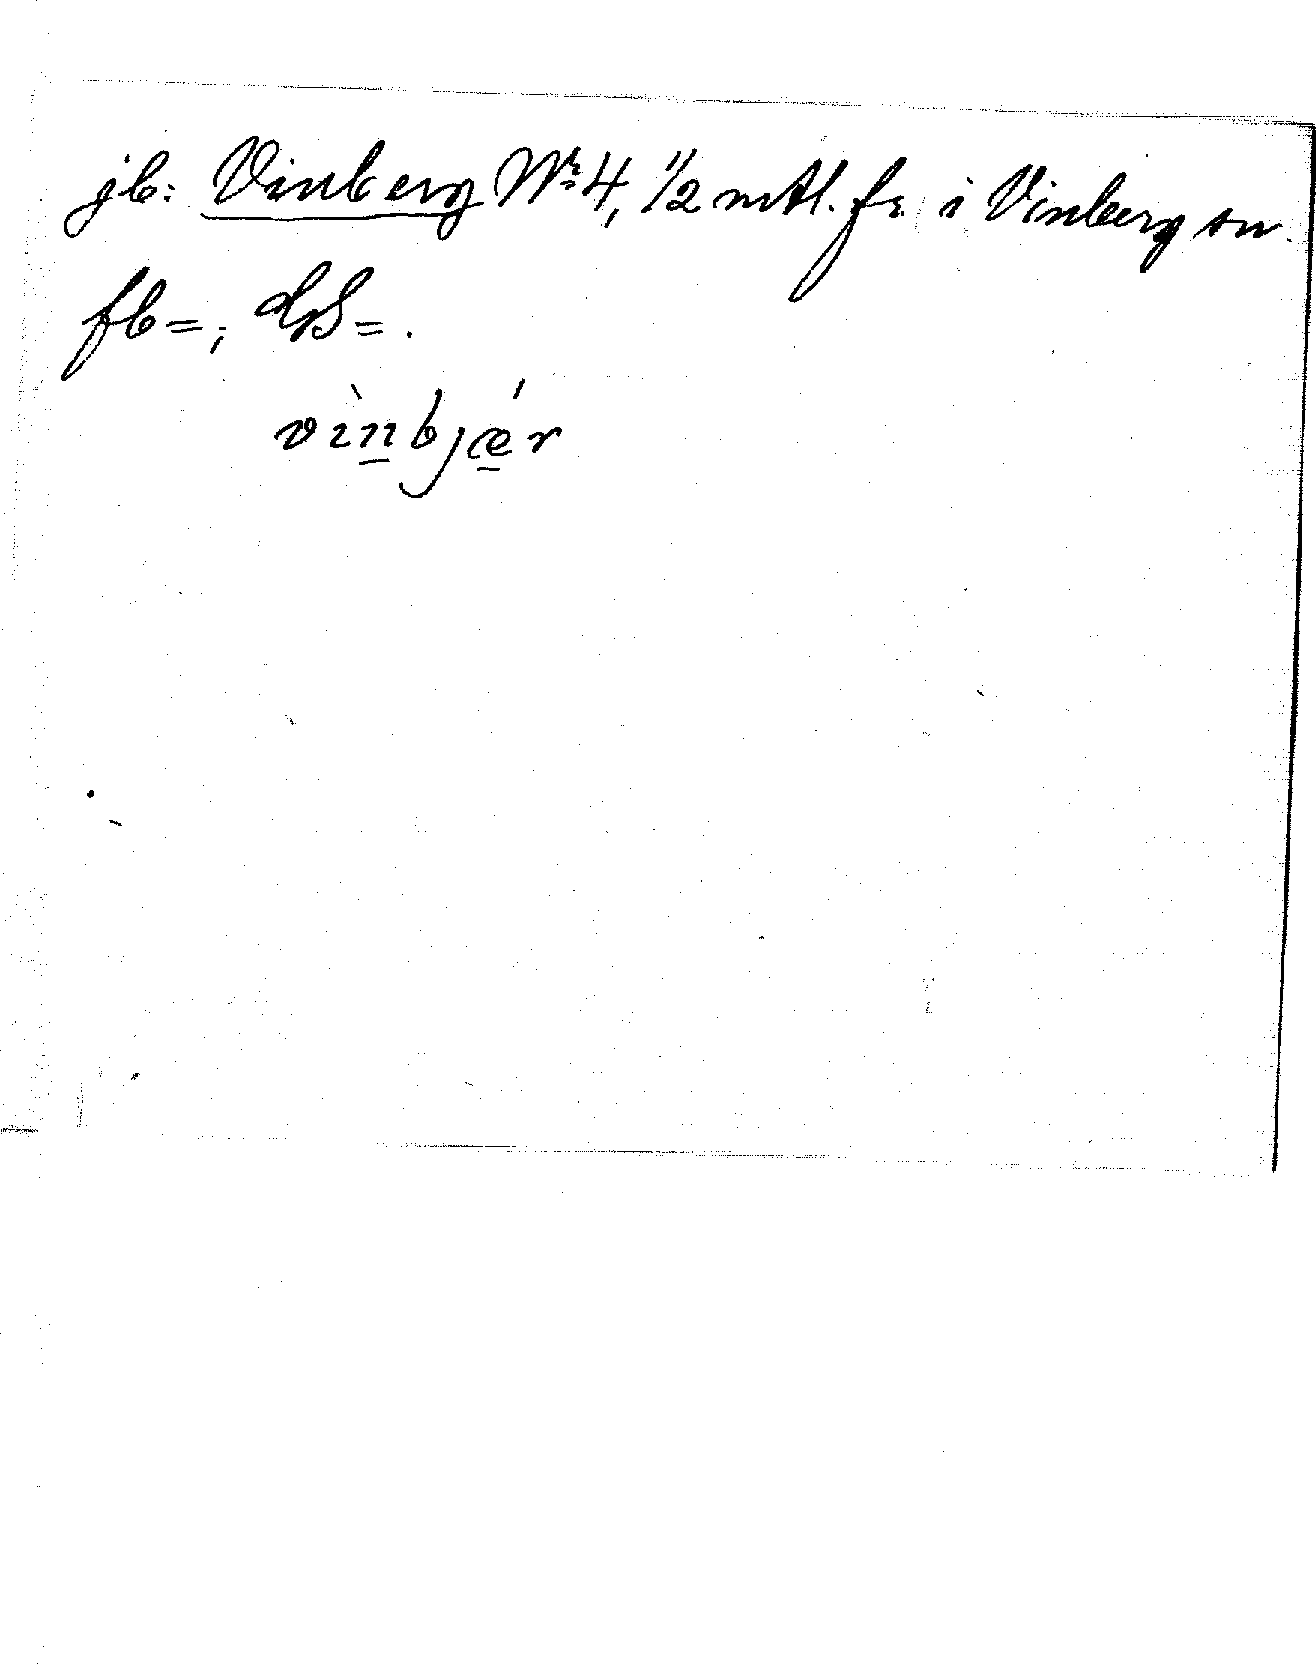 jb: Vinberg Nr 4, 1/2 mtl. fr. i Vinberg sn.
fb =; dsS = .
vìnbjǽr